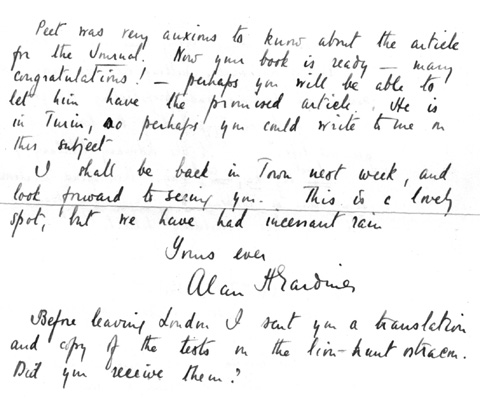 Peet was very anxious to know about the article
for the Journal. Now your book is ready — many
congratulations! — perhaps you will be able to
let him have the promised article. He is
in Turin, so perhaps you could write to me on
this subject
I shall be back in Town next week, and
look forward to seeing you. This is a lovely
spot, but we have had incessant rain
Yours ever
Alan H Gardiner
Before leaving London I sent you a translation
and copy of the texts on the lion-hunt ostracon.
Did you receive them?